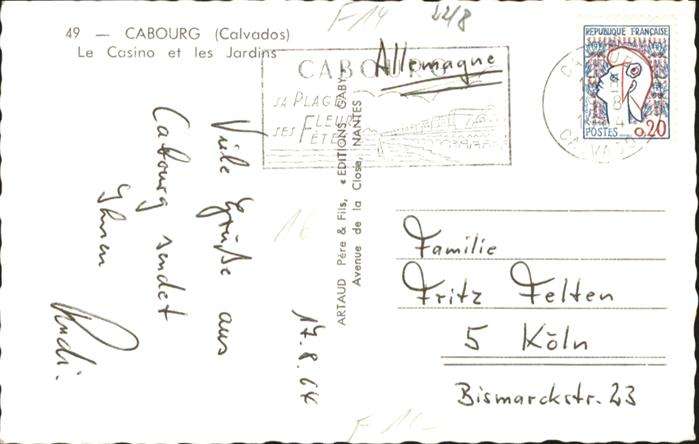 49 — CABOURG (Calvados)
Le Casino et les Jardins
F-14
22/8
CABOURG
SA PLAGE
SES FLEURS
FÊTES
Allemagne
REPUBLIQUE FRANÇAISE
POSTES
0,20
CALVADOS
Viele Grüße aus
Cabourg sendet
Ihnen
Rudi.
17.8.64
16
ARTAUD Père & Fils, « EDITIONS GABY »
Avenue de la Close, NANTES
Familie
Fritz Felten
5 Köln
Bismarckstr. 23